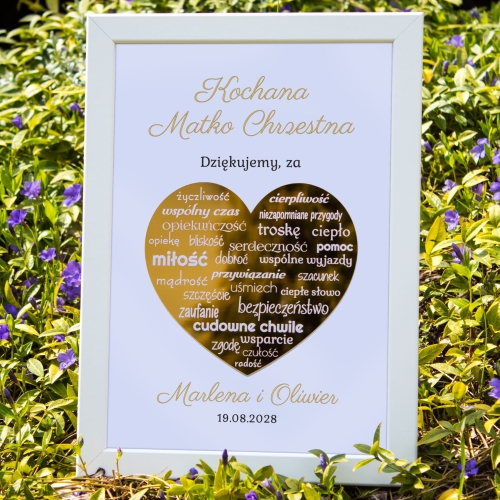 Kochana
Matko Chrzestna
Dziękujemy, za
życzliwość cierpliwość
wspólny czas niezapomniane przygody
opiekuńczość troskę ciepło
opiekę bliskość serdeczność pomoc
miłość dobroć wspólne wyjazdy
mądrość przywiązanie szacunek
szczęście uśmiech ciepłe słowo
zaufanie bezpieczeństwo
cudowne chwile
zgodę wsparcie
czułość
radość
Marlena i Oliwier
19.08.2028